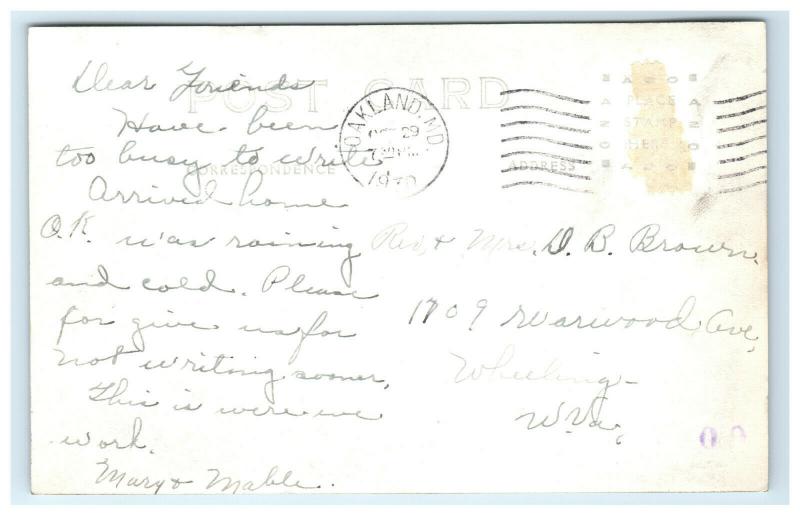 POST CARD
Dear Friends
Have been
too busy to write
CORRESPONDENCE
Arrived home
O.K. was raining
and cold. Please
for give us for
not writing sooner.
This is were we
work.
Mary & Mable.
OAKLAND, MD.
29
ADDRESS
AZO
PLACE
STAMP
HERE
AZO
Rev, & Mrs. D. B. Brown.
1709 Warwood Ave,
Wheeling-
W. Va.